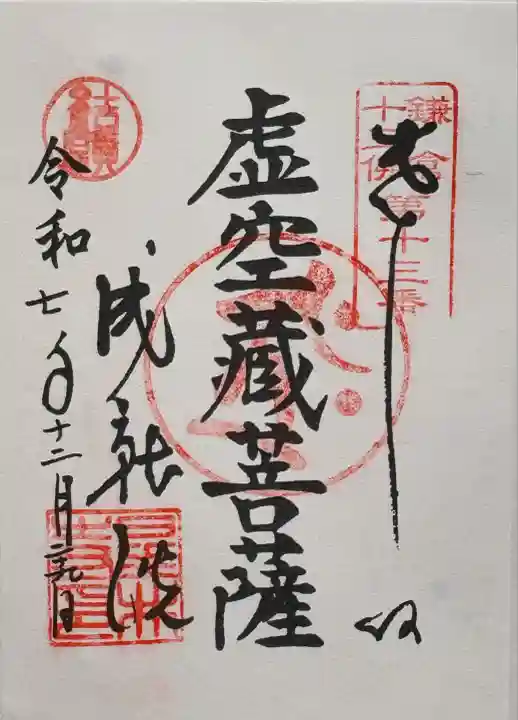 鎌倉
十三佛
第十三番
奉拝
虚空藏菩薩
成就院
令和七年十二月 日